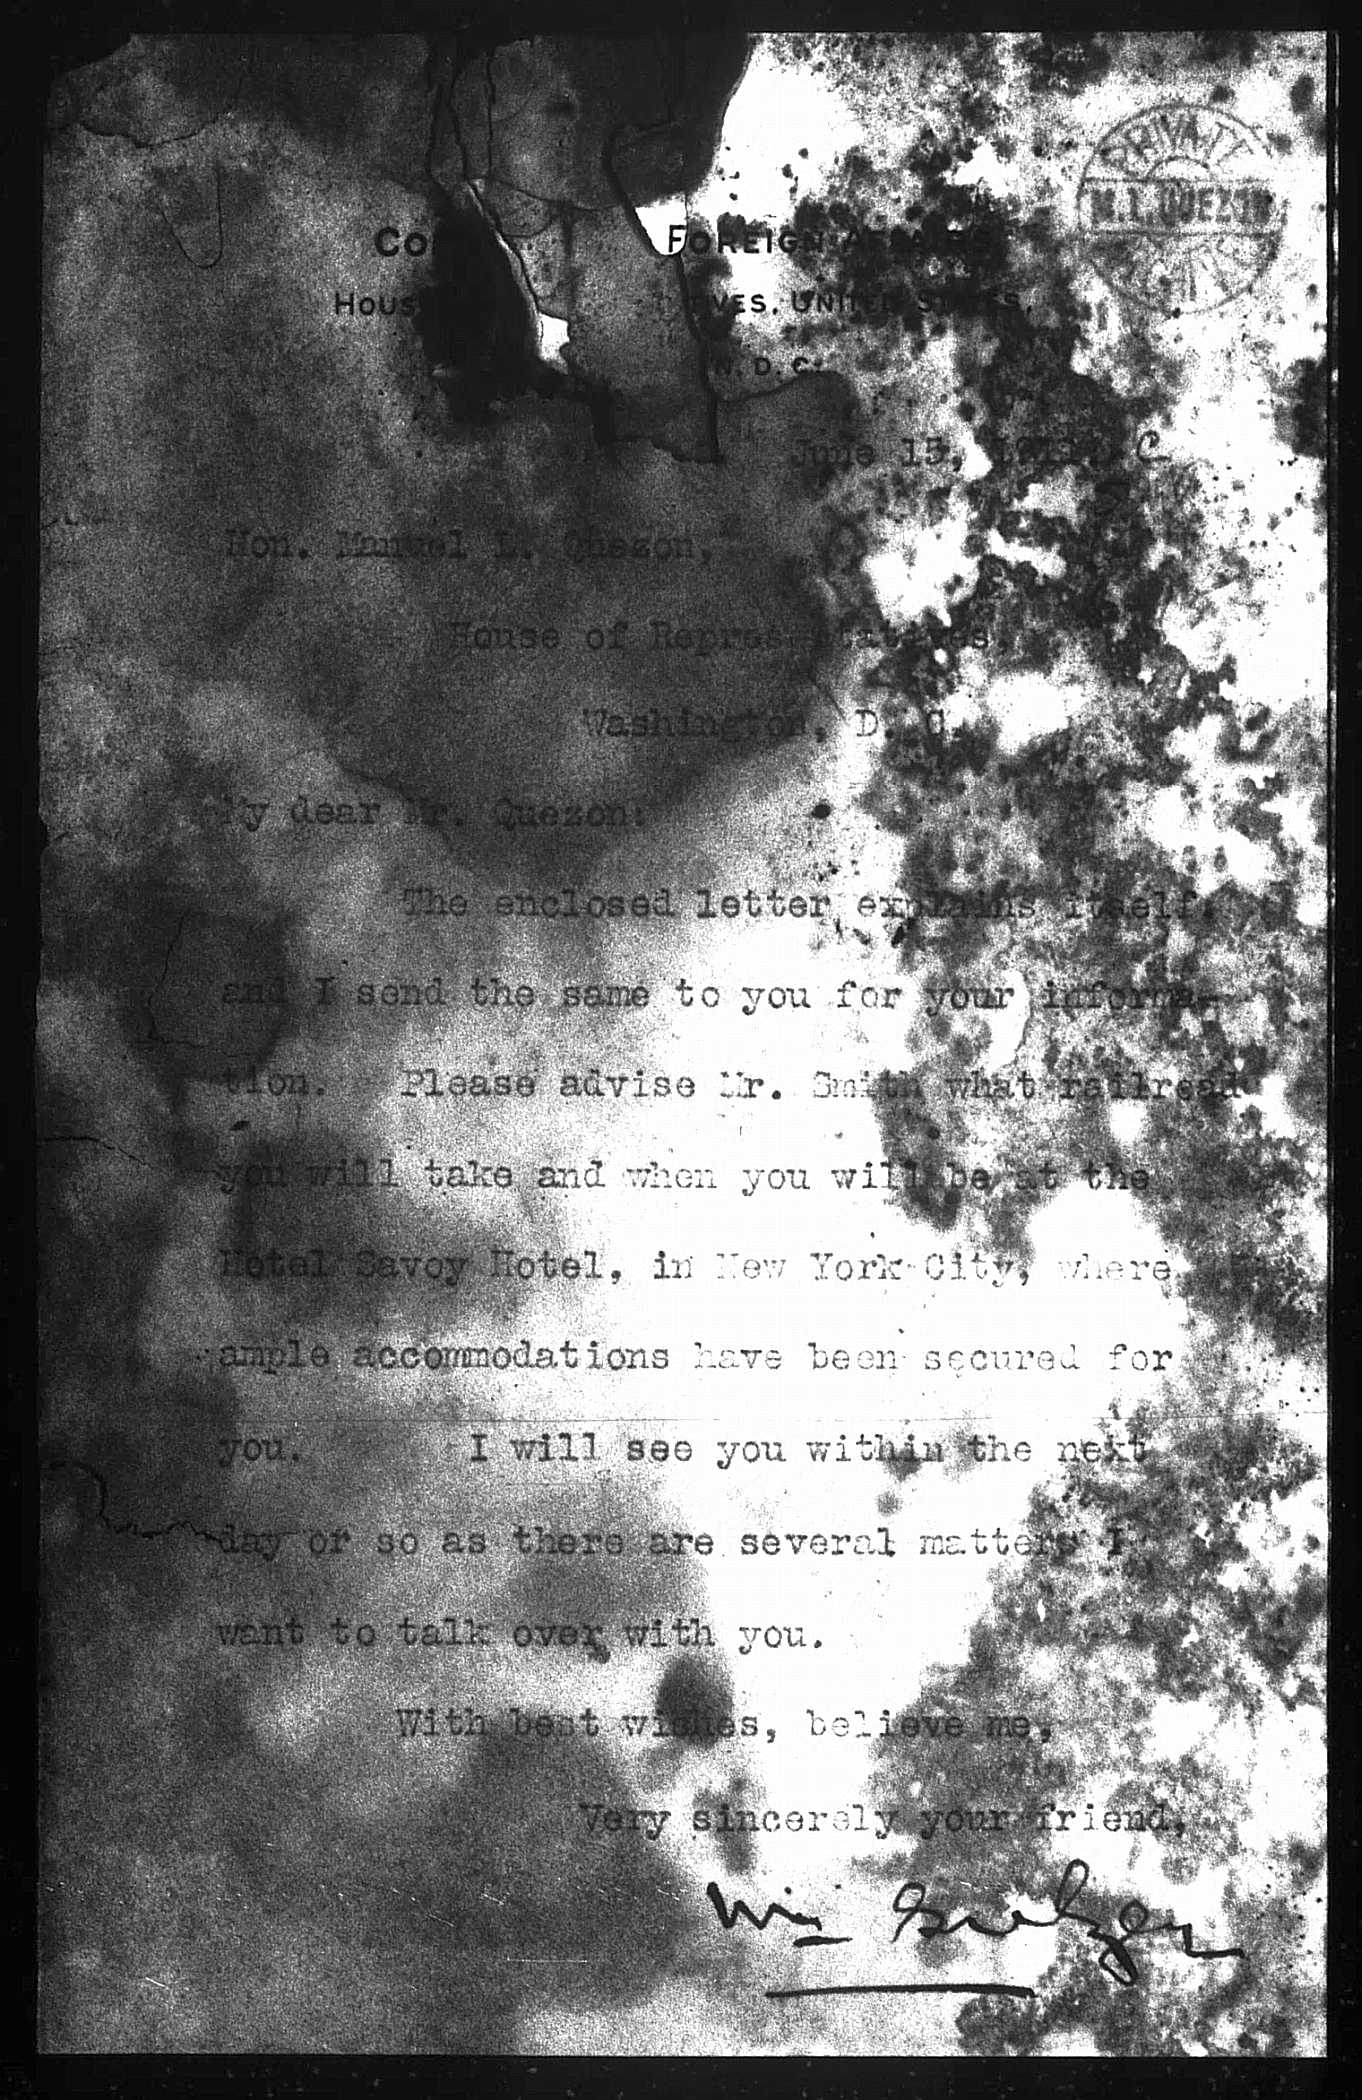 PRIVATE
M. L. QUEZON
Co FOREIGN AFFAIRS
HOUS VES, UNITED STATES,
N. D. C.
June 15,
Hon. Manuel L. Quezon,
House of Representatives,
Washington, D. C.
My dear Mr. Quezon:
The enclosed letter explains itself,
and I send the same to you for your informa-
tion. Please advise Mr. Smith what railroad
you will take and when you will be at the
Hotel Savoy Hotel, in New York City, where
ample accommodations have been secured for
you. I will see you within the next
day or so as there are several matters I
want to talk over with you.
With best wishes, believe me,
Very sincerely your friend,
Wm Sulzer